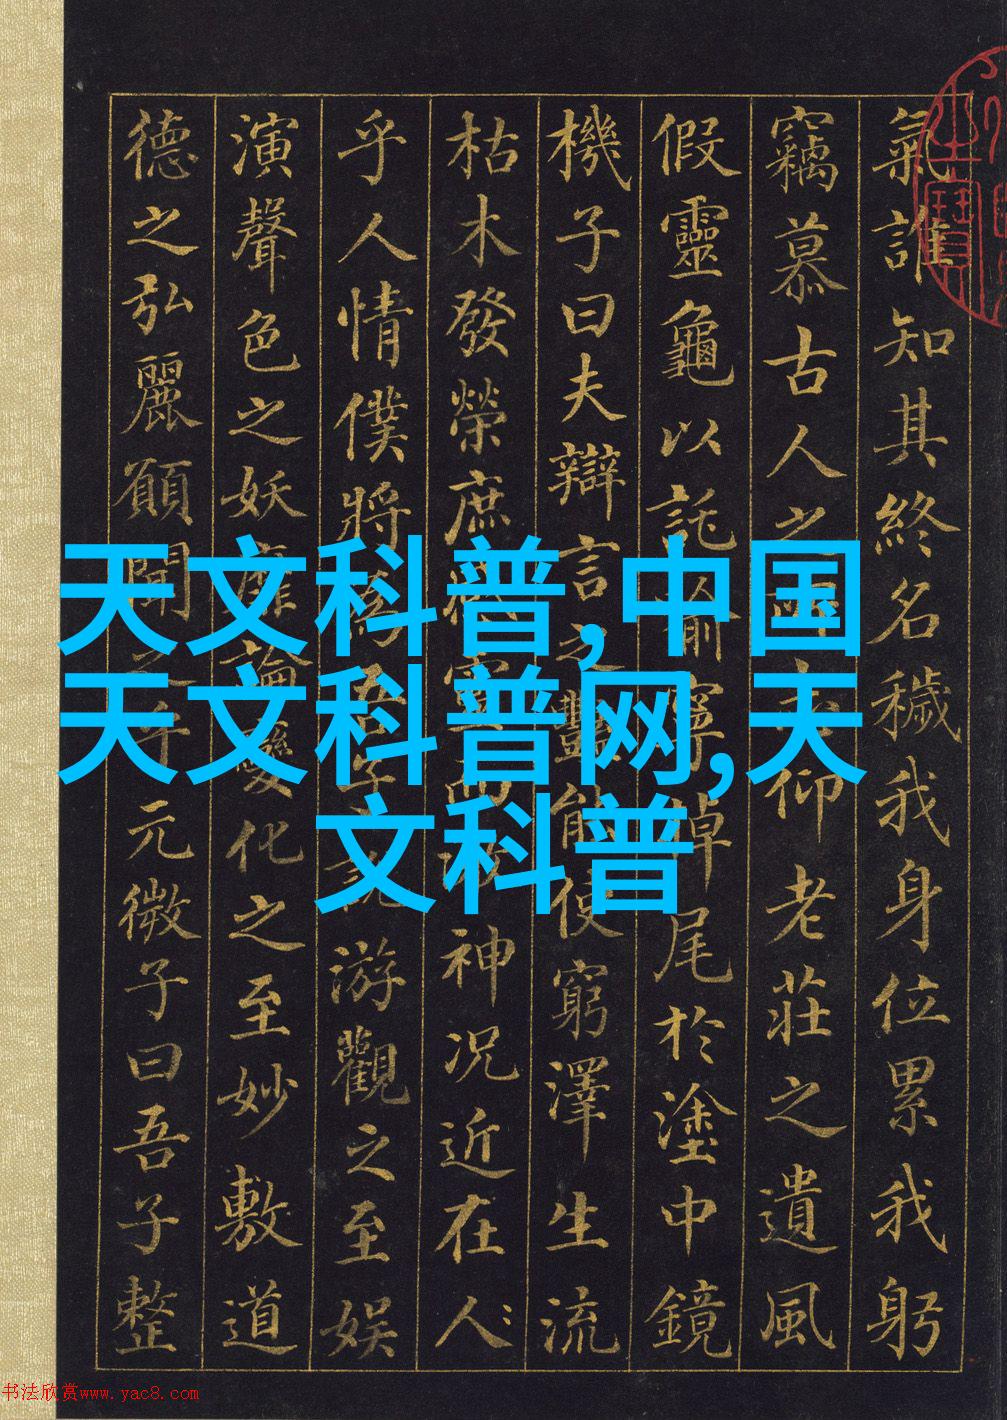 天文科普,中国
天文科普网,天
文科普
氣誰知其終名穢我身位累我躬
竊慕古人之所志仰老莊之遺風
假靈龜以託喻寧掉尾於塗中鏡
機子曰夫辯言之豔能使窮澤生流
枯木發榮庶感靈而激神況近在人
乎人情僕將為吾子說游觀之至娛
演聲色之妖靡論變化之至妙敷道
德之弘麗願聞之乎元微子曰吾子整
书法欣赏www.yac8.com